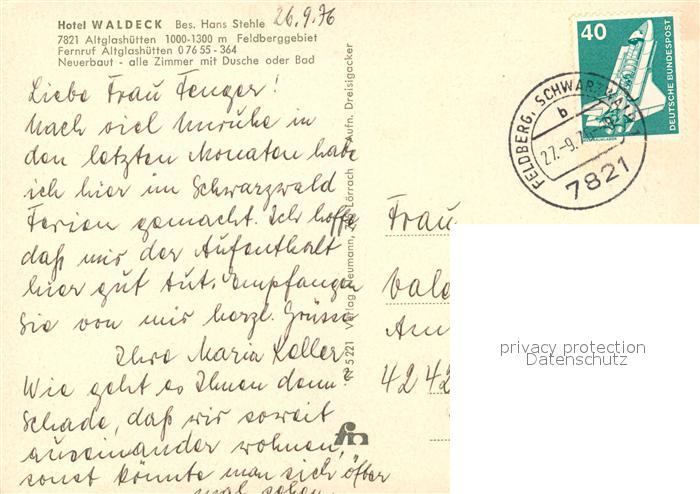 Hotel WALDECK Bes. Hans Stehle
7821 Altglashütten 1000-1300 m Feldberggebiet
Fernruf Altglashütten 0 76 55 - 364
Neuerbaut - alle Zimmer mit Dusche oder Bad
26.9.76
Liebe Frau Fenger!
Nach viel Unruhe in
den letzten Monaten habe
ich hier im Schwarzwald
Ferien gemacht. Ich hoffe,
daß mir der Aufenthalt
hier gut tut. Empfangen
Sie von mir herzl. Grüsse
Ihre Maria Koller
Wie geht es Ihnen denn?
Schade, daß wir soweit
auseinander wohnen,
sonst könnte man sich öfter
mal sehen.
5221 Verlag Neumann, Lörrach Aufn. Dreisigacker
40
DEUTSCHE BUNDESPOST
FELDBERG, SCHWARZWALD 1
b
27.-9.76
7821
Frau
Am
4242
privacy protection
Datenschutz